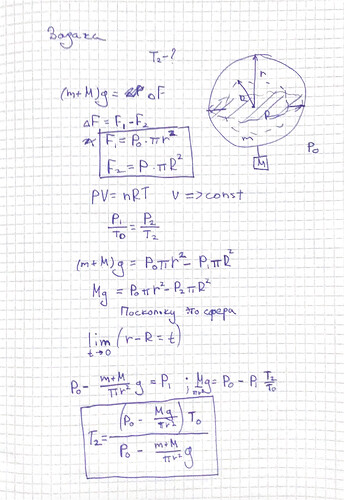 Задача
T₂-?
(m+M)g = ΔF
ΔF = F₁-F₂
F₁ = P₀·πr²
F₂ = P·πR²
r
R
P
m
M
P₀
PV = nRT V => const
P₁/T₀ = P₂/T₂
(m+M)g = P₀πr² - P₁πR²
Mg = P₀πr² - P₂πR²
Поскольку это сфера
lim t→0 (r-R=t)
P₀ - (m+M)/(πr²) g = P₁ ; Mg/(πr²) = P₀ - P₁ T₂/T₀
T₂ = (P₀ - Mg/(πr²)) T₀ / (P₀ - (m+M)/(πr²) g)